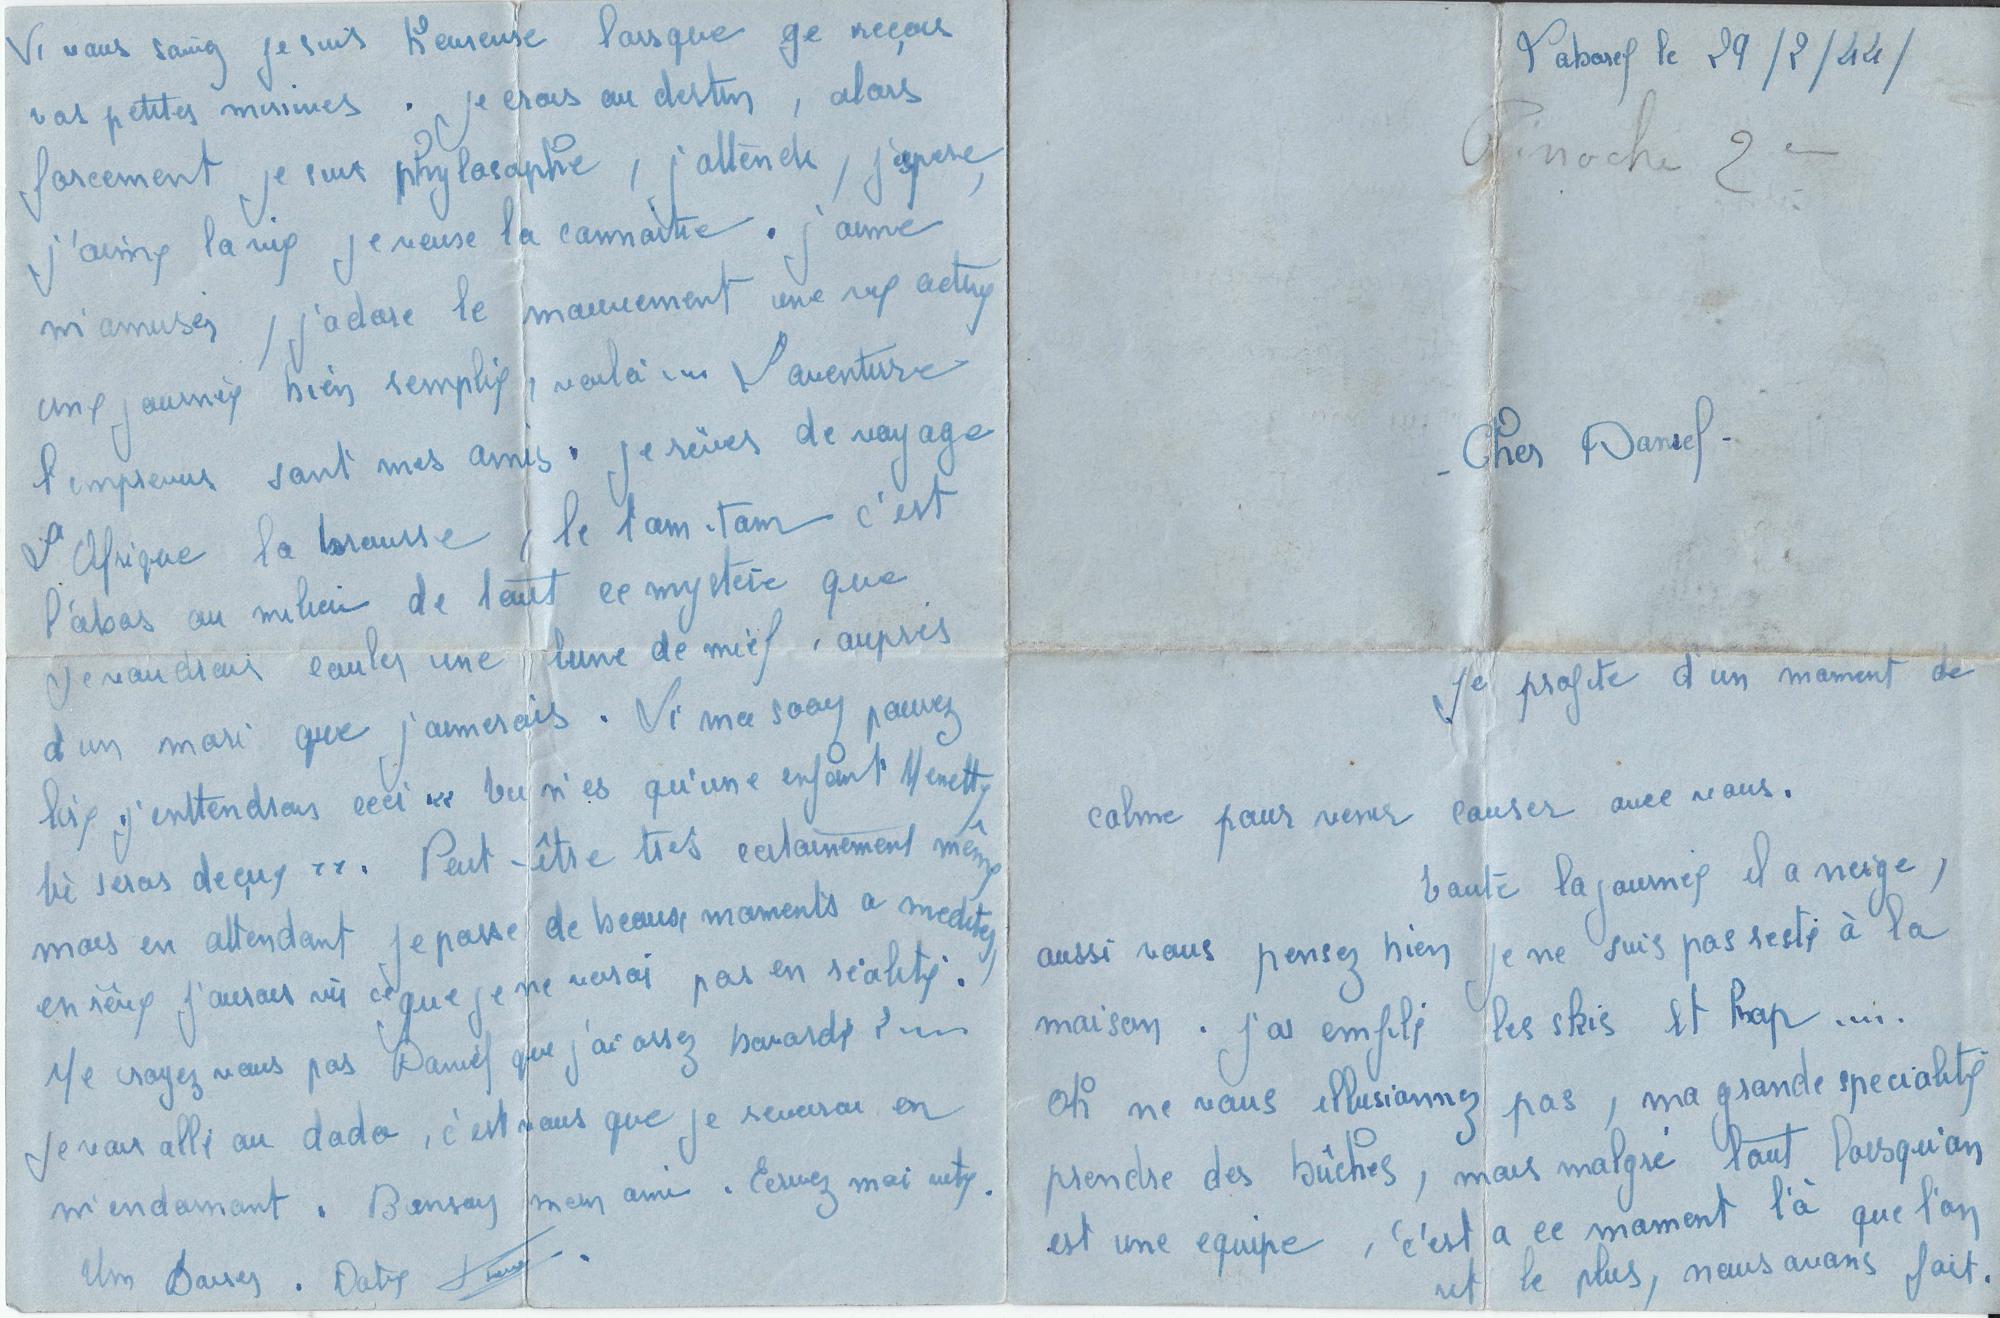 Vi vous savez je suis heureuse lorsque ge reçois
vos petites missives . je crois au destin , alors
forcement je suis phylosophe , j'attends , j'espere,
j'aime la vie je veuse la connaitre . j'aime
m'amuser , j'adore le mouvement une vie active
une journée bien remplie , voilà ... L'aventure
l'imprevus sont mes amis . je rêves de voyage
L'Afrique la brousse , le tam-tam c'est
l'àbas au milieu de tout ce mystère que
je voudrais couler une lune de miel , auprès
d'un mari que j'aimerais . Vi ma soay pouvez
lire j'enttendrais ceci " tu n'es qu'une enfant Ninette
tu seras deçue " . Peut-être très certainement même
mais en attendant je passe de beaux moments a mediter,
en rêve j'aurais vu ce que je ne verrai pas en réalité.
Ne croyez vous pas Daniel que j'ai assez bavardé ? ...
Je vais allé au dodo , c'est vous que je reverrai en
m'endormant . Bonsoay mon ami . Ecrivez moi vite.
Um Baiser .
Laborel le 29/2/44/
Pinoche 2e
- Cher Daniel -
Je profite d'un moment de
calme pour venir causer avec vous.
toute la journée il a neigé ,
aussi vous pensez bien je ne suis pas resté à la
maison . j'ai empli les skis et hap ....
Oh ne vous illusionnez pas , ma grande specialité
prendre des bûches , mais malgré tout lorsqu'on
est une equipe , c'est a ce moment l'à que l'on
rit le plus , nous avons fait.